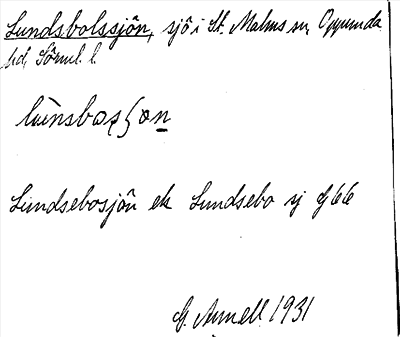 Lundsbolssjön, sjö i St. Malms sn, Oppunda
hd, Sörml. l.
lùnsbosʃon
Lundsebosjön ek Lundsebo sj G66
G. Arnell 1931